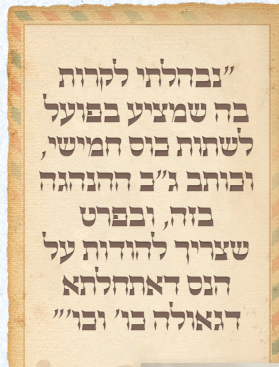 "נבהלתי לקרות
בה שמציע בפועל
לשתות כוס חמישי,
וכותב ג"כ ההנהגה
בזה, ובפרט
שצריך להודות על
הנס דאתחלתא
דגאולה כו' וכו'"